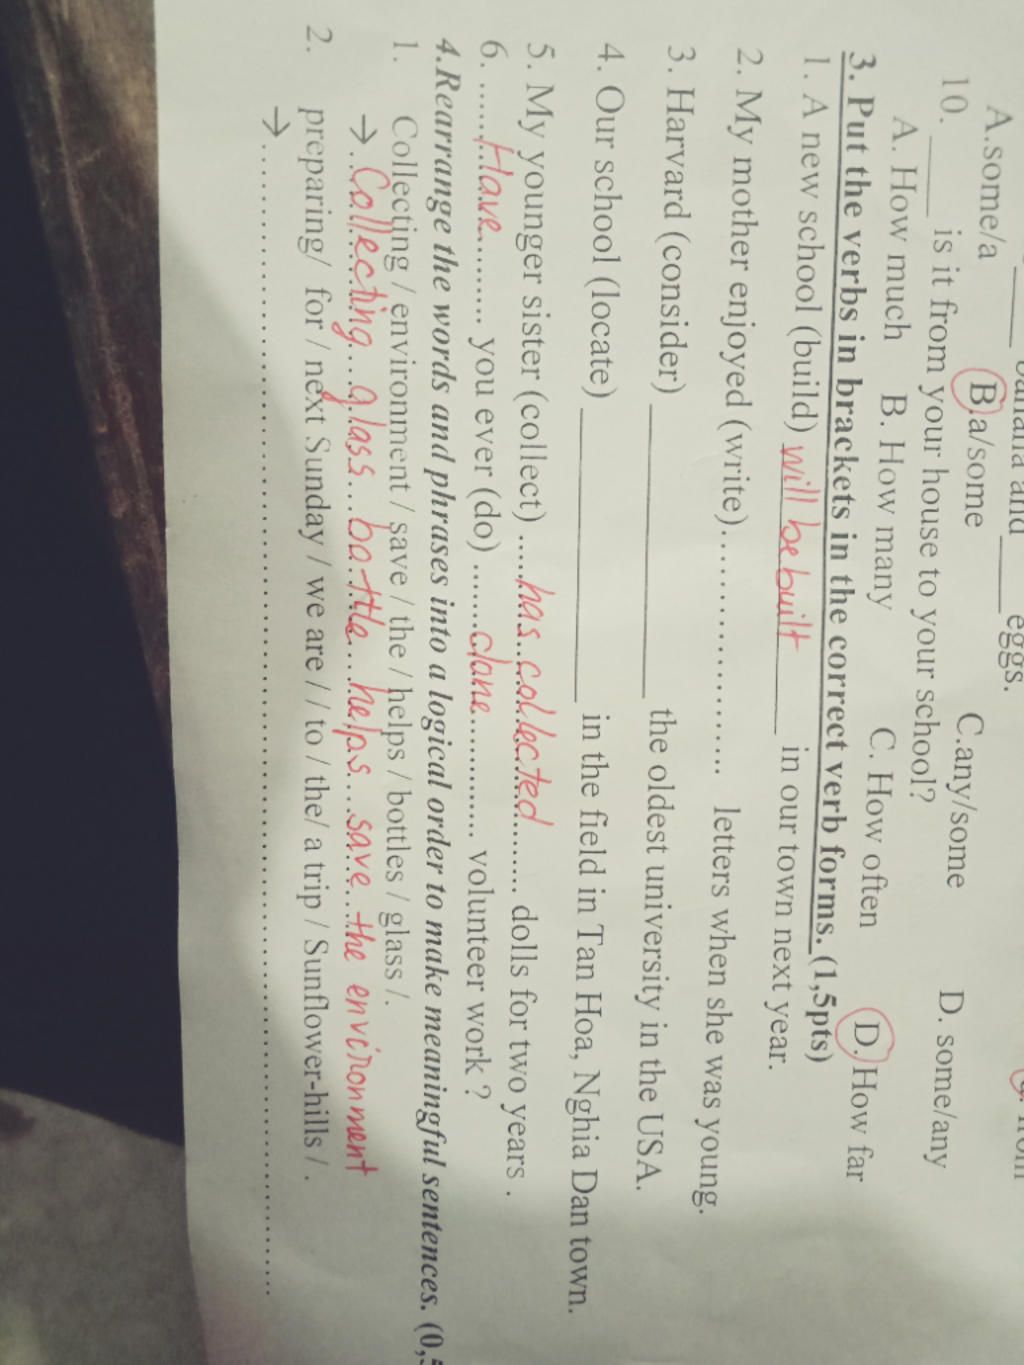 A.some/a B.a/some C.any/some D. some/any
and ____ eggs.
10. ____ is it from your house to your school?
A. How much B. How many C. How often D. How far
3. Put the verbs in brackets in the correct verb forms. (1,5pts)
1. A new school (build) will be built in our town next year.
2. My mother enjoyed (write)........................ letters when she was young.
3. Harvard (consider) ____________ the oldest university in the USA.
4. Our school (locate) ____________ in the field in Tan Hoa, Nghia Dan town.
5. My younger sister (collect) .....has collected....... dolls for two years .
6. ......Have......... you ever (do) .......done............ volunteer work ?
4.Rearrange the words and phrases into a logical order to make meaningful sentences.
1. Collecting / environment / save / the / helps / bottles / glass /.
→ Collecting glass bottle helps save the environment
2. preparing/ for / next Sunday / we are / / to / the/ a trip / Sunflower-hills / .
→ ................................................